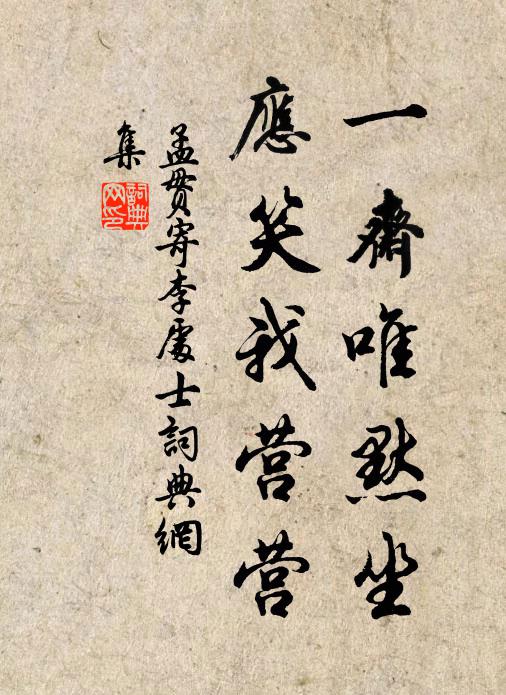 一齋唯默坐
應笑我营营
孟貫寄李處士詞典網
集
詞典
网印